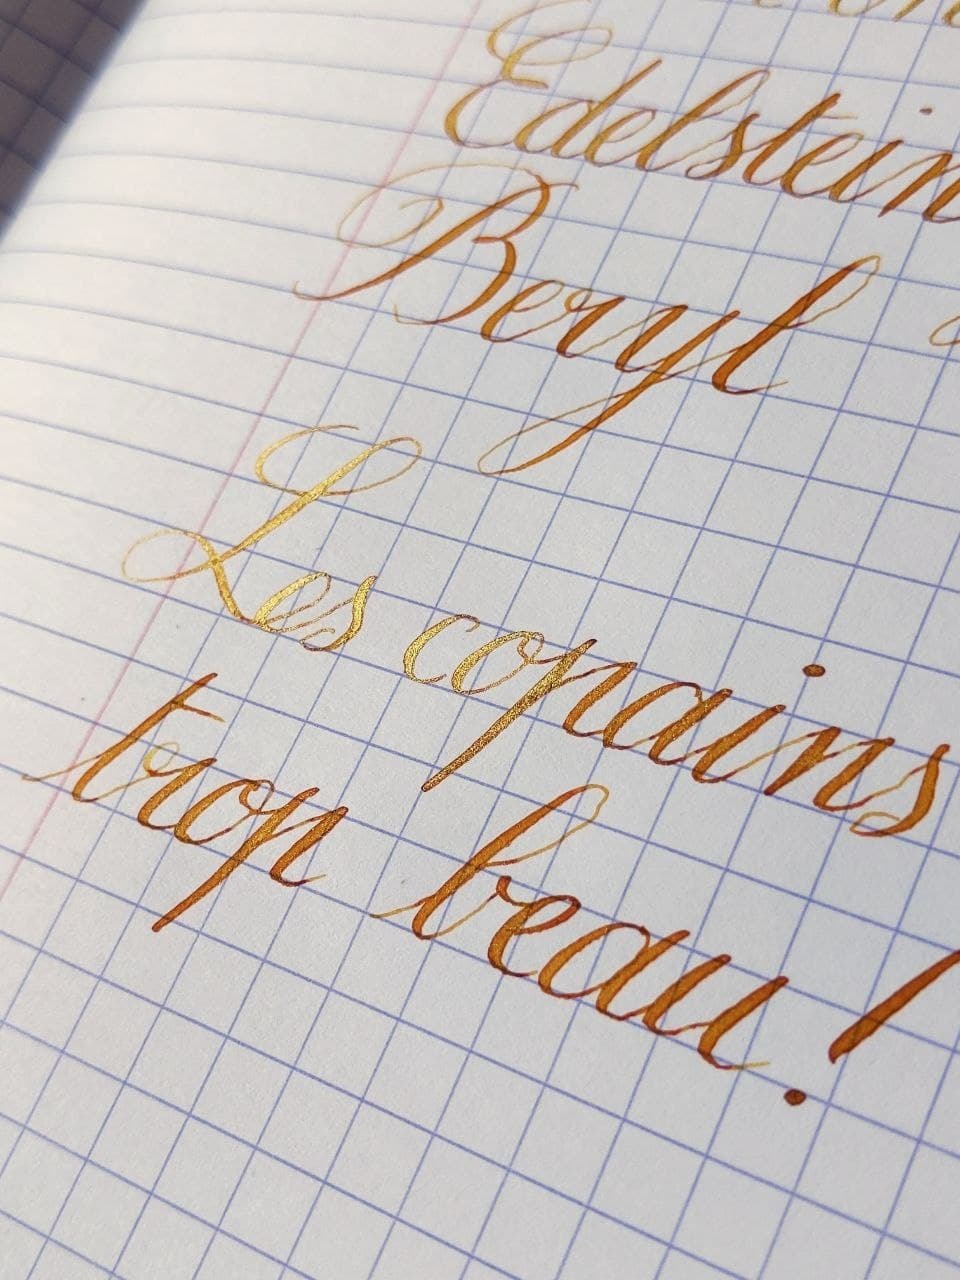 Edelstein
Beryl
Les copains
trop beau !